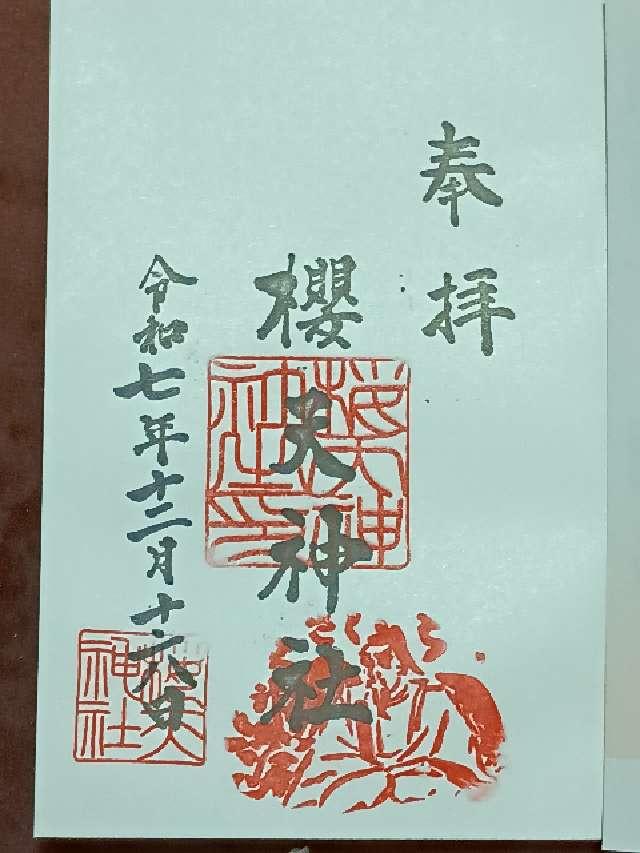 奉拝
櫻天神社
令和七年十二月十六日
桜天神
社印
桜天
神社